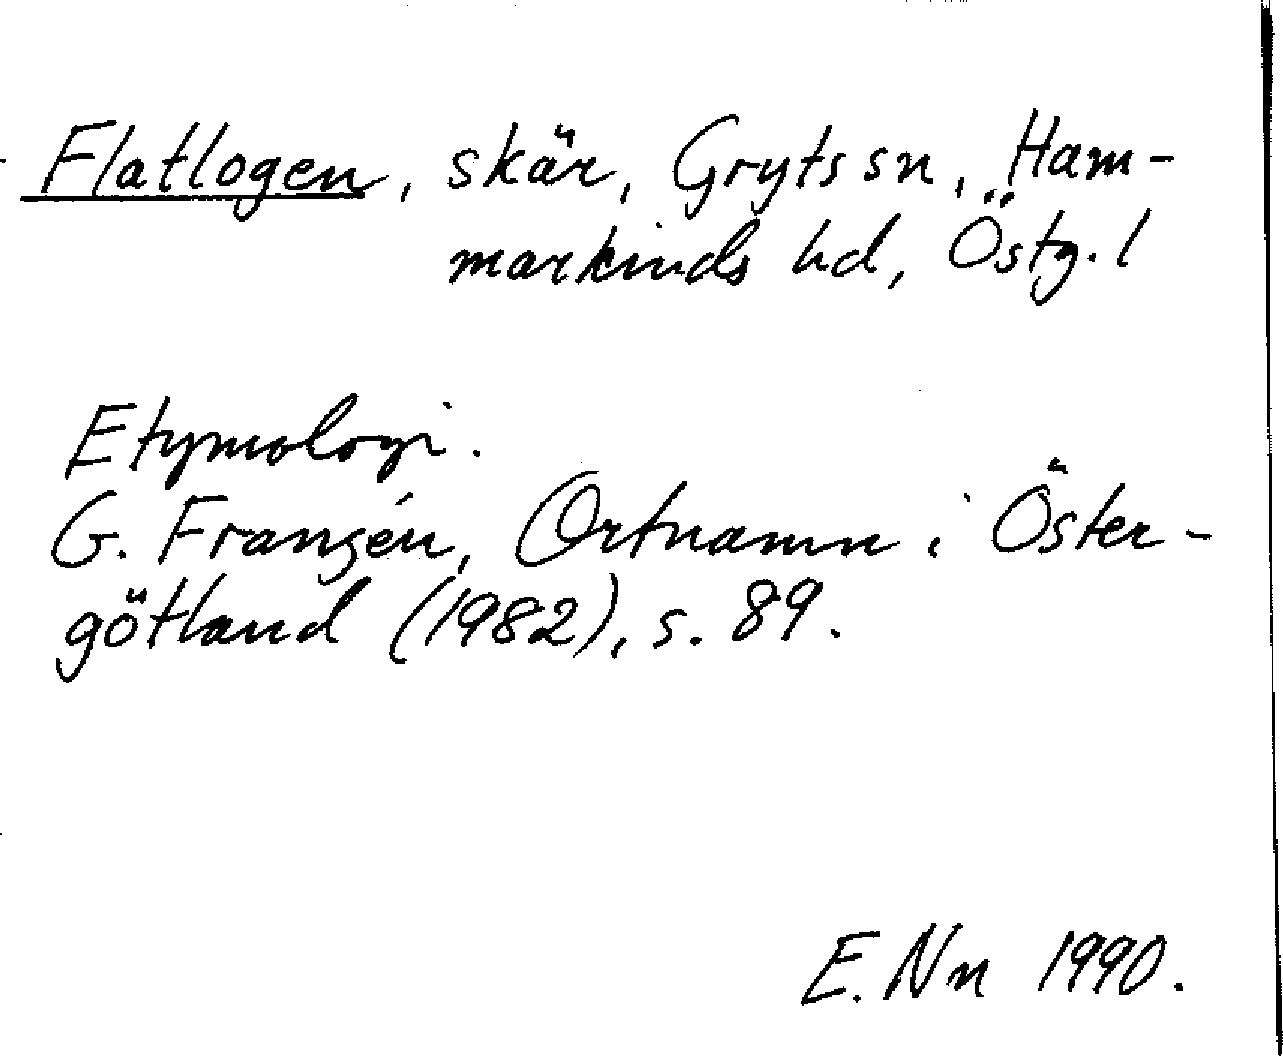 Flatlogen, skär, Gryts sn, Ham-
markinds hd, Östg. l
Etymologi.
G. Franzén, Ortnamn i Öster-
götland (1982), s. 89.
E. Nn 1990.